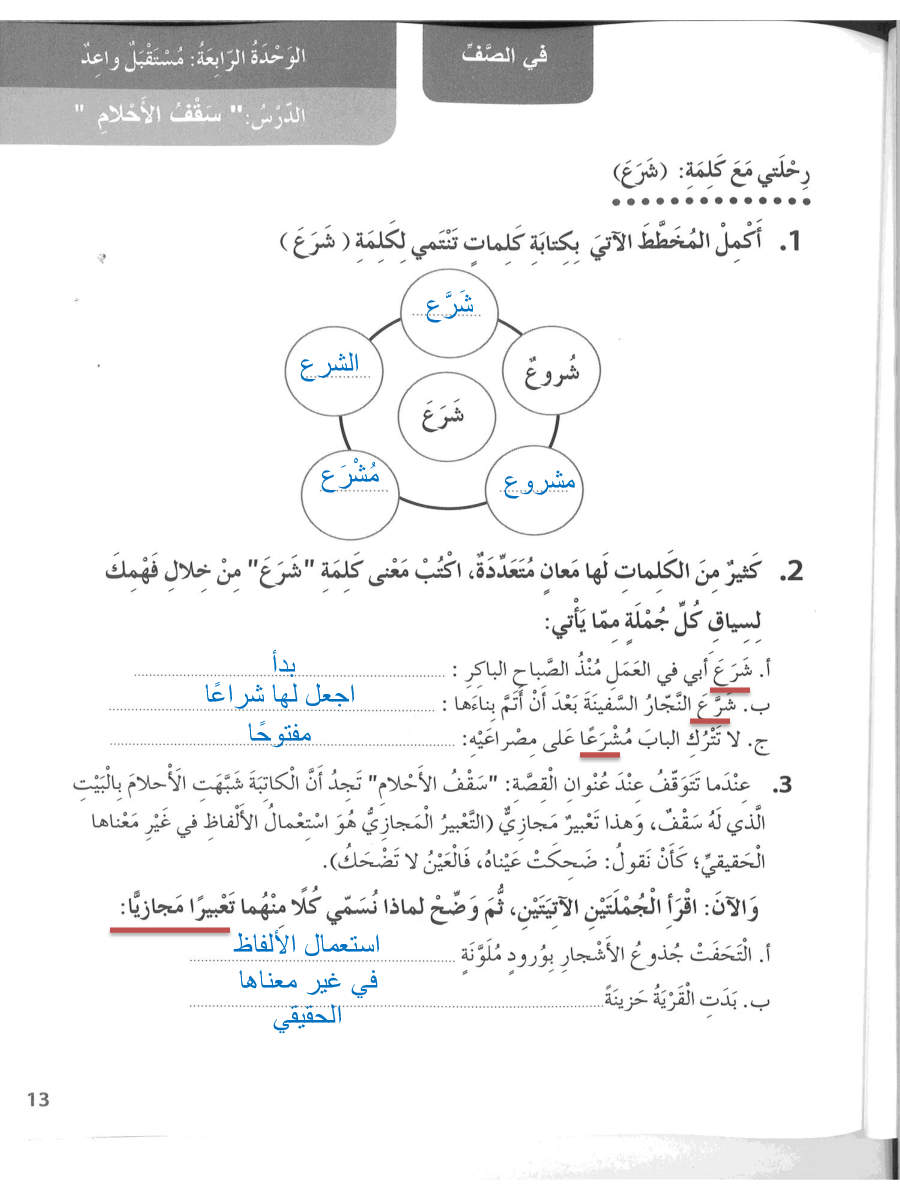 في الصَّفِّ
الوَحْدَةُ الرّابِعَةُ: مُسْتَقْبَلٌ واعِدٌ
الدَّرْسُ: " سَقْفُ الأَحْلامِ "
رِحْلَتي مَعَ كَلِمَةِ: (شَرَعَ)
1. أَكْمِلْ المُخَطَّطَ الآتيَ بِكِتابَةِ كَلِماتٍ تَنْتَمي لِكَلِمَةِ ( شَرَعَ )
شَرَّع
الشرع
شُروعٌ
شَرَعَ
مُشْرَع
مشروع
2. كَثيرٌ مِنَ الكَلِماتِ لَها مَعانٍ مُتَعَدِّدَةٌ، اكْتُبْ مَعْنى كَلِمَةِ "شَرَعَ" مِنْ خِلالِ فَهْمِكَ
لِسِياقِ كُلِّ جُمْلَةٍ مِمّا يَأْتي:
أ. شَرَعَ أَبي في العَمَلِ مُنْذُ الصَّباحِ الباكرِ : بدأ
ب. شَرَّعَ النَّجّارُ السَّفينَةَ بَعْدَ أَنْ أَتَمَّ بِناءَها : اجعل لها شراعًا
ج. لا تَتْرُكِ البابَ مُشْرَعًا عَلى مِصْراعَيْهِ: مفتوحًا
3. عِنْدَما تَتَوَقَّفُ عِنْدَ عُنْوانِ الْقِصَّة: "سَقْفُ الأَحْلامِ" تَجِدُ أَنَّ الْكاتِبَةَ شَبَّهَتِ الْأَحلامَ بِالْبَيْتِ
الَّذي لَهُ سَقْفٌ، وَهذا تَعْبيرٌ مَجازِيٌّ (التَّعْبيرُ المَجازِيُّ هُوَ اسْتِعْمالُ الأَلْفاظِ في غَيْرِ مَعْناها
الْحَقيقيِّ؛ كَأَنْ نَقولُ: ضَحِكَتْ عَيْناهُ، فَالعَيْنُ لا تَضْحَكُ).
وَالآنَ: اقْرَأِ الْجُمْلَتَيْنِ الآتِيَتَيْنِ، ثُمَّ وَضِّحْ لماذا نُسَمّي كُلًا مِنْهُما تَعْبيرًا مَجازِيًّا:
أ. الْتَحَفَتْ جُذوعُ الأَشْجارِ بِوُرودٍ مُلَوَّنَةٍ استعمال الألفاظ
في غير معناها
ب. بَدَتِ الْقَرْيَةُ حَزينَةً
الحقيقي
13